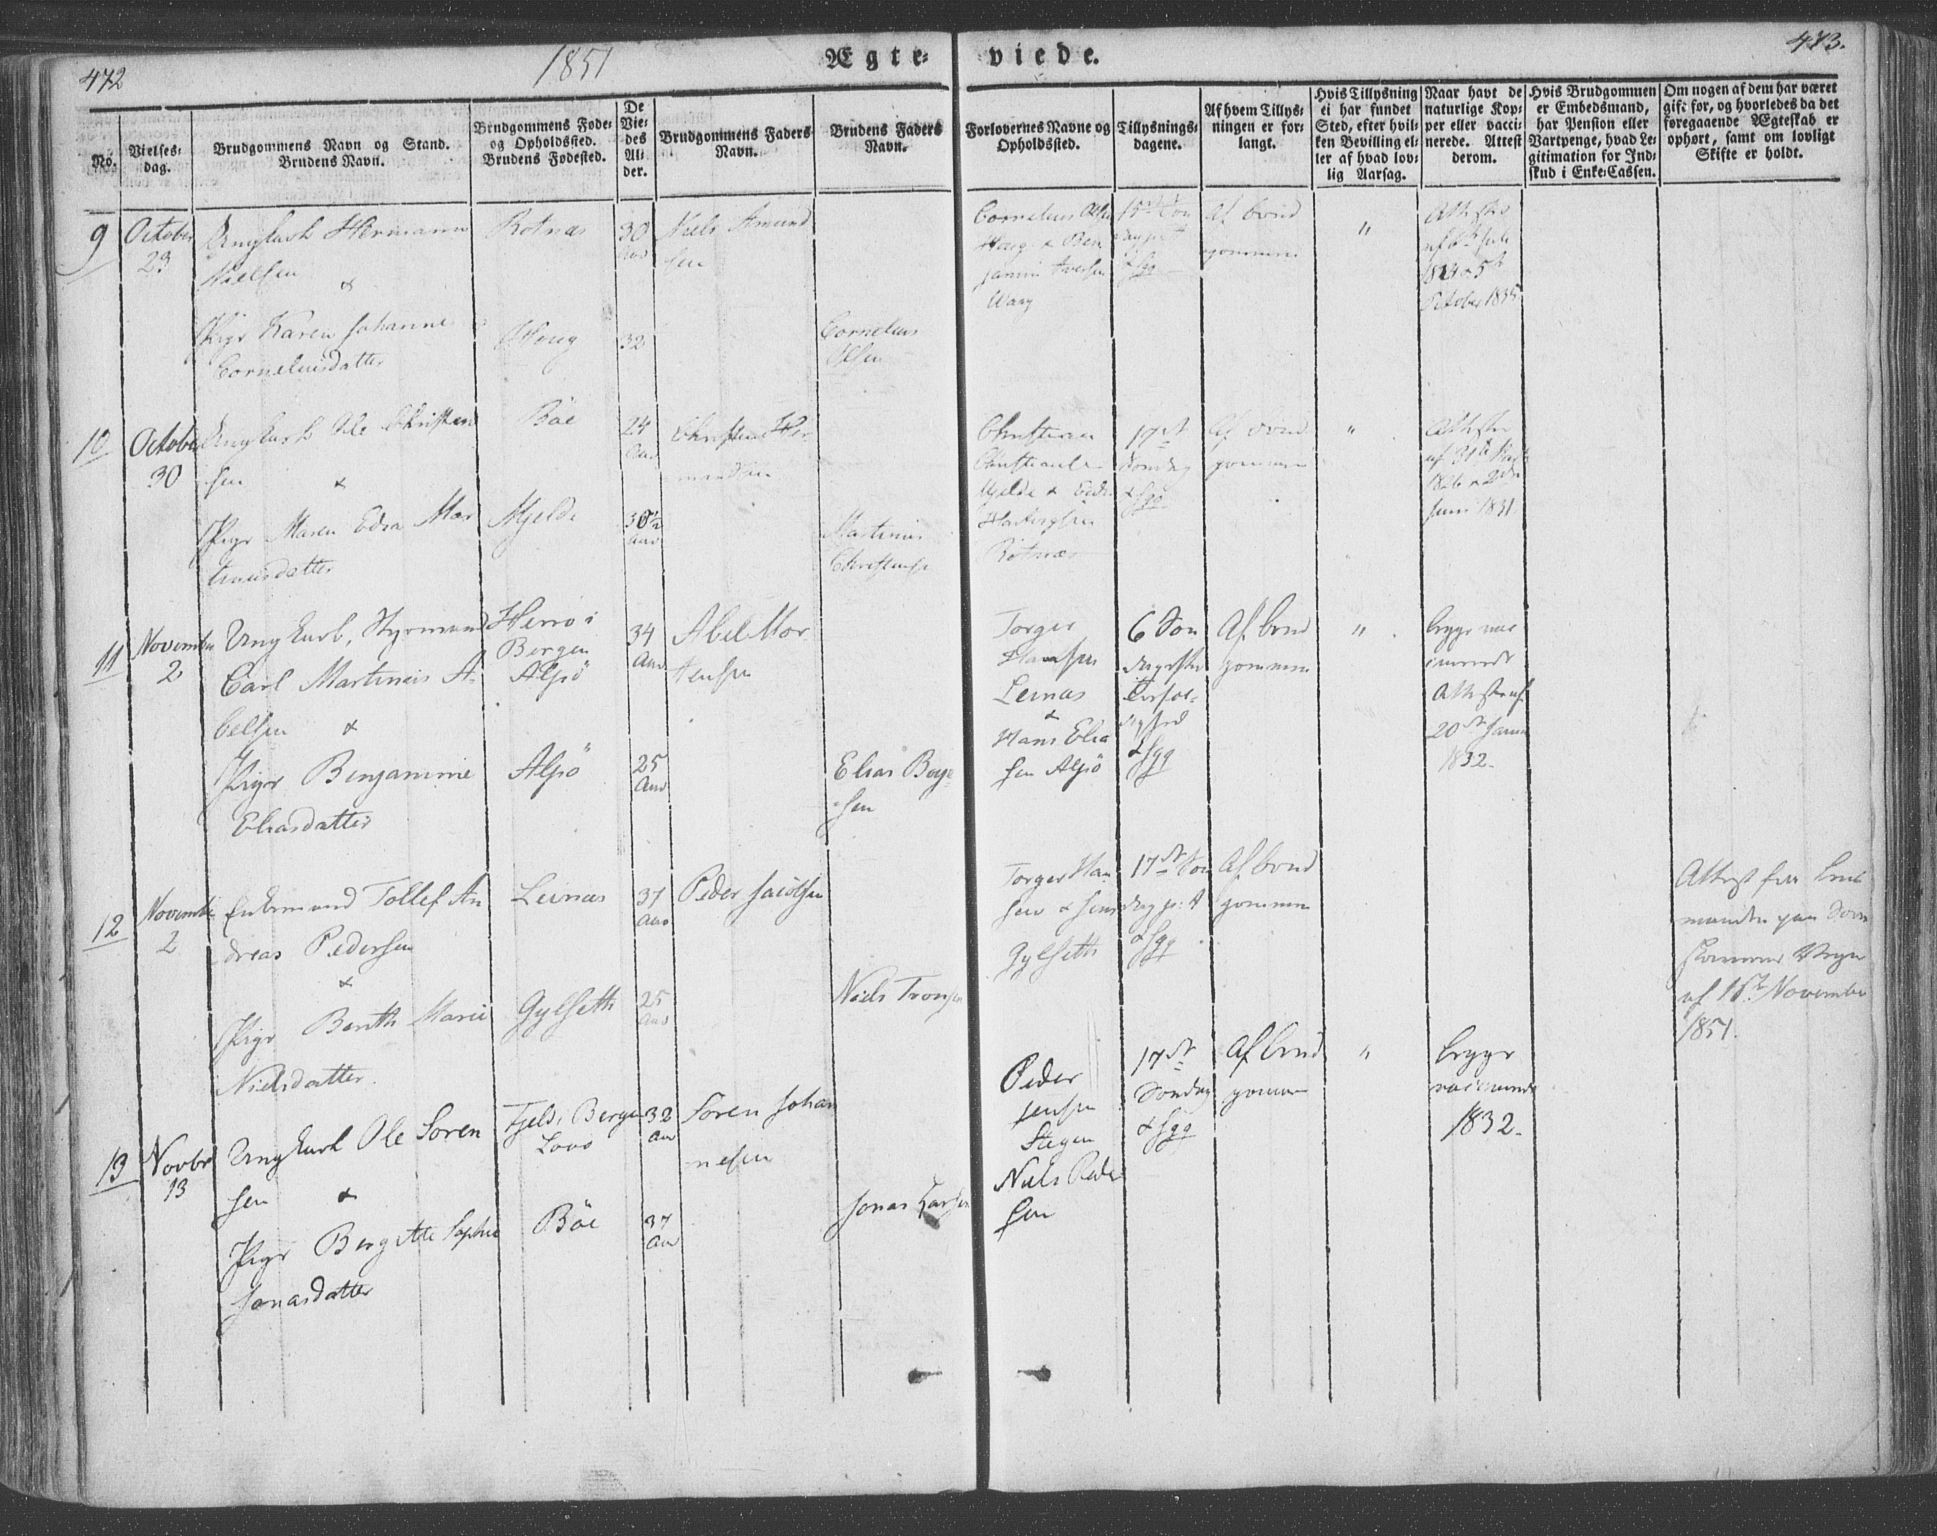 472
1851
Ægte-
viede.
473.
No.
Vielses-
dag.
Brudgommens Navn og Stand.
Brudens Navn.
Brudgommens Føde-
og Opholdssted.
Brudens Fødested.
De
Vie-
des
Al-
der.
Brudgommens Faders
Navn.
Brudens Faders
Navn.
Forlovernes Navne og
Opholdssted.
Tillysnings-
dagene.
Af hvem Tillys-
ningen er for-
langt.
Hvis Tillysning
ei har fundet
Sted, efter hvil-
ken Bevilling el-
ler af hvad lov-
lig Aarsag.
Naar havt de
naturlige Kop-
per eller vacci-
nerede. Attest
derom.
Hvis Brudgommen
er Embedsmand,
har Pension eller
Vartpenge, hvad Le-
gitimation for Ind-
skud i Enke-Cassen.
Om nogen af dem har været
gift før, og hvorledes da det
foregaaende Ægteskab er
ophørt, samt om lovligt
Skifte er holdt.
9
October
23
Ungkarl Hermann
Nielsen
&
Pige Karen Johanne
Corneliusdatter
Rotnæs
Houg
30
Aar
32
Niels Amund
sen
Cornelius
Olsen
Cornelius Olsen
Houg & Ben
jamin Iversen
Waag
Af brud
gommen
"
Attester
October 1835
10
October
30
Ungkarl Ole Christian
sen
&
Pige Maren Edsa Mar
tinusdatter
Böe
Mjelde
24
Aar
30½
Aar
Martinus
Christensen
Christian
Mjelde &
Rotnæs
17de
Söndag
& fgg
Af brud
gommen
"
Attester
1826 & 2den
Juni 1831.
11
November
2
Ungkarl, Styrmand
Carl Martinus A-
belsen
&
Pige Benjamine
Eliasdatter
Herrö i
Bergen
Alsö
Alsö
34
Aar
25
Aar
Abel Mor
tensen
Elias Boye
sen
Torger
Hansen
Leinæs
&
Hans Elia
sen Alsö
6 Sön
& fgg
Af brud
gommen
"
begge vac
cinerede
Attest af
20de Janu
1832.
12
November
2
Enkemand Tollef An
dreas Pedersen
&
Pige Berith Marie
Nielsdatter.
Leinæs
Gylseth
37
Aar
25
Aar
Peder Jacobsen
Niels Tronsen
Torger Han
sen & Jens
Gylseth
17de Sön
dag p: T
& fgg
Af brud
gommen
Attest fra
af November
1851.
13
Novbr
13
Ungkarl Ole Sören
sen
&
Pige Bergitte Sophie
Jonasdatter
Fjeld, Bergen
Böe
32
Aar
37
Aar
Sören Johan
nesen
Jonas Larsen
Peder
Jensen
Stegen
Niels Peder
sen
17de
Söndag
& fgg
Af brud
gommen
"
begge
vaccinerede
1832.